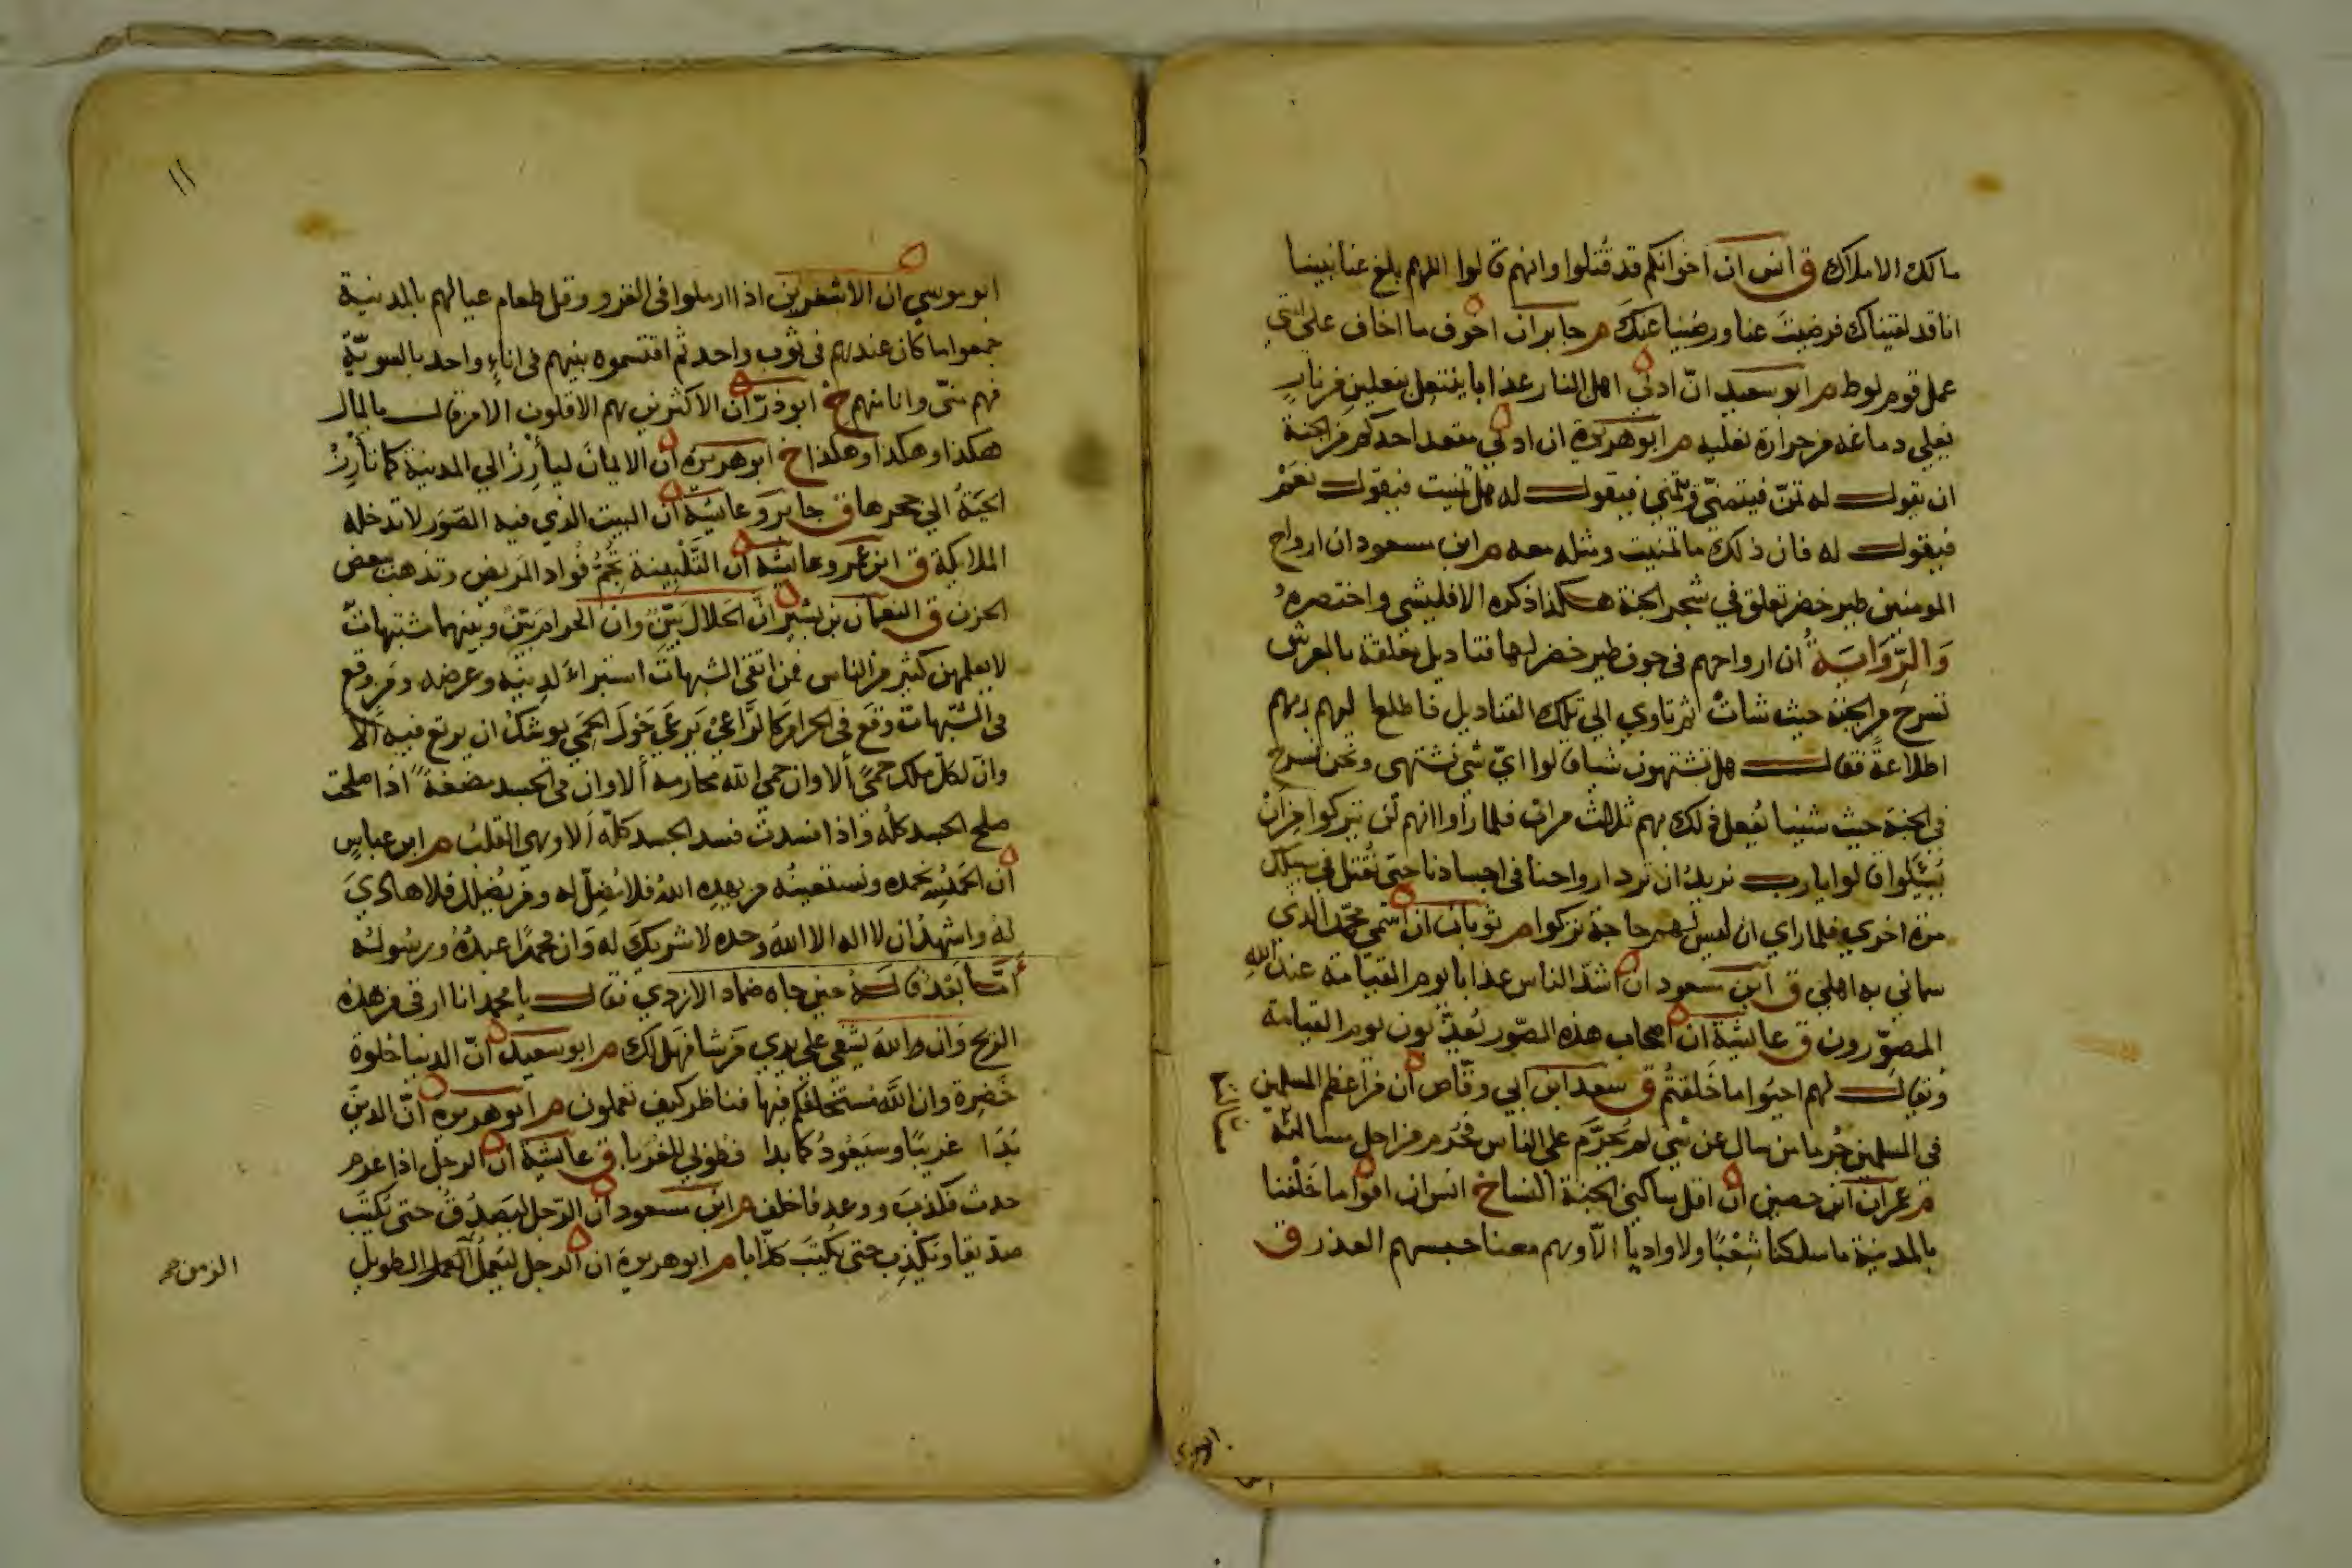 مالك الاملاك ق انس ان اخوانكم قد قتلوا وانهم قالوا اللهم بلغ عنا نبينا
انا قد لقيناك فرضيت عنا ورضينا عنك م جابر ان اخوف ما اخاف على امتي
عمل قوم لوط م ابو سعيد انّ ادنى اهل النار عذابا ينتعل بنعلين من نار
يغلي دماغه من حرارة نعليه م ابو هريرة ان ادنى مقعد احدكم من الجنة
ان يقول له تمنّ فيتمنّى ويتمنى فيقول له هل تمنيت فيقول نعم
فيقول له فان ذلك ما تمنيت ومثله معه م ابن مسعود ان ارواح
المومنين طير خضر تعلق في شجر الجنة هكذا ذكره الاقليشي واختصره
وَالرِّوَايَةُ ان ارواحهم في جوف طير خضر لها قناديل معلقة بالعرش
تسرح من الجنة حيث شات ثم تاوي الي تلك القناديل فاطلع اليهم ربهم
اطلاعةً فقال هل تشتهون شيا قالوا ايّ شي نشتهي ونحن نسرح
في الجنة حيث شينا ففعل ذلك بهم ثلاث مرات فلما راوا انهم لن يتركوا من ان
يُسئلوا قالوا يا رب نريد ان ترد ارواحنا في اجسادنا حتى نقتل في سبيلك
مرة اخري فلما راي ان ليس لهم حاجة تركوا م ثوبان ان اسمي محمّد الذي
سماني به اهلي ق ابن مسعود ان اشدّ الناس عذابا يوم القيامة عند الله
المصوّرون ق عائشة ان اصحاب هذه الصّور يُعذّبون يوم القيامة
ويقال لهم احيوا ما خلقتم ق سعد ابن ابي وقّاص ان من اعظم المسلمين
في المسلمين جُرما من سال عن شي لم يُحرَّم على الناس فحُرم من اجل مسالته
م عمران ابن حصين ان اقل ساكني الجنة النسا خ انس ان اقواما خَلْفنا
بالمدينة ما سلكنا شِعْبًا ولا واديًا الّا وهم معنا حبسهم العذر ق
١١
ابو موسي ان الاشعريين اذا ارملوا في الغزو وقل طعام عيالهم بالمدينة
جمعوا ما كان عندهم في ثوب واحد ثم اقتسموه بينهم في اناءٍ واحد بالسويّة
فهم منّي وانا منهم خ ابو ذرّ ان الاكثرين هم الاقلون الا من قال بالمال
هكذا وهكذا وهكذا خ ابو هريرة ان الايمان ليأرِزُ الي المدينة كما تأرِزُ
الحيّة الي جحرها ق جابر وعائشة ان البيت الذي فيه الصّوَر لا تدخله
الملائكة ق ابن عمر وعائشة ان التَّلْبينة تُجِمُّ فُواد المريض وتذهب بعض
الحزن ق النعمان بن بشير انّ الحلال بيّن وان الحرام بيّن وبينهما مشتبهات
لا يعلمهن كثير من الناس فمن اتقى الشبهات استبراء لدينه وعرضه ومن وقع
في الشّبهات وقع في الحرام كالرّاعي يَرعَي حَول الحِمَي يوشك ان يرتع فيه الا
وانّ لكل ملك حمًى ألا وان حمي الله محارمه ألا وان في الجسد مضغةً اذا صلحت
صلح الجسد كله واذا فسدت فسد الجسد كلّه ألا وهي القلب م ابن عباسٍ
ان الحمد لله نحمده ونستعينه من يهده الله فلا مُضِلّ له ومن يُضلل فلا هاديَ
له واشهد ان لا اله الا الله وحده لا شريك له وان محمّدًا عبدُهُ ورسُولُهُ
أمّا بَعْد قَالَهُ حين جاه ضماد الازدي فقال يا محمد انا ارقي من هذه
الريح وَان الله يشفي علي يدي من شا فهل لك م ابو سعيد انّ الدنيا حُلوة
خَضِرة وان اللَّه مُستخلفكم فيها فناظر كيف تعملون م ابو هريرة انّ الدينَ
بَدَا غريبًا وسَيَعُودُ كما بدا فطوبي للغربا ق عائشة ان الرجل اذا غرم
حدث فكذب ووعد فاخلف م ابن مسعود ان الرّجل ليَصدُقُ حتى يُكتَب
صدّيقا ويَكذِب حتى يُكتَبَ كذّابا م ابو هريرة ان الرجل ليَعملُ العمل الطويل
الزمن صح